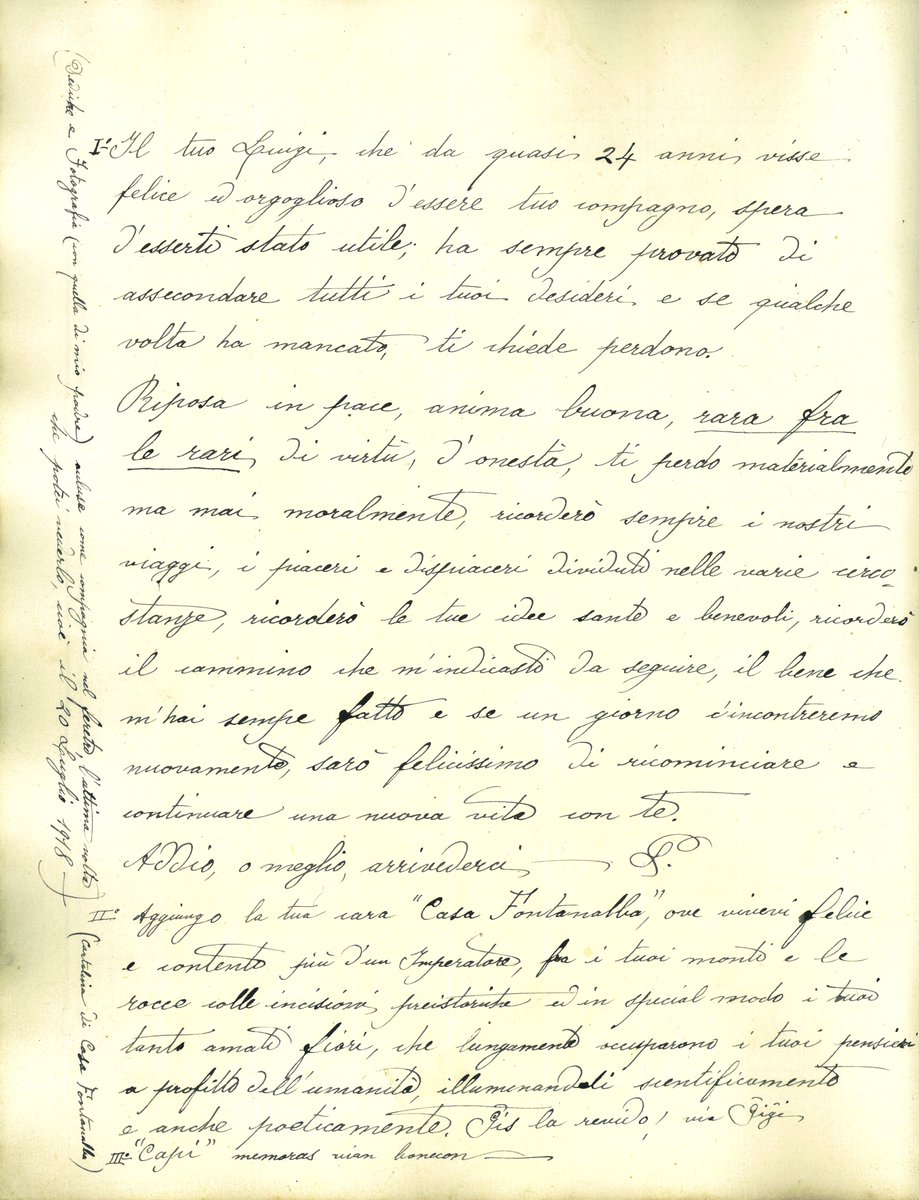 I° Il tuo Luigi, che da quasi 24 anni visse
felice ed orgoglioso d'essere tuo compagno, spera
d'esserti stato utile; ha sempre provato di
assecondare tutti i tuoi desideri e se qualche
volta ha mancato, ti chiede perdono.
Riposa in pace, anima buona, rara fra
le rari, di virtù, d'onestà, ti perdo materialmente
ma mai moralmente, ricorderò sempre i nostri
viaggi, i piaceri e dispiaceri dividuti nelle varie circo-
stanze, ricorderò le tue idee sante e benevoli, ricorderò
il cammino che m'indicasti da seguire, il bene che
m'hai sempe fatto e se un giorno c'incontreremo
nuovamente, sarò felicissimo di ricominciare e
continuare una nuova vita con te.
Addio, o meglio, arrivederci — L.
II° Aggiungo la tua cara "Casa Fontanalba", ove vivevi felice
e contento più d'un Imperatore, fra i tuoi monti e le
rocce colle incisioni preistoriche ed in special modo i tuoi
tanto amati fiori, che lungamente occuparono i tuoi pensieri
a profitto dell'umanità, illuminandoli scientificamente
e anche poeticamente. Ĝis la revido! via Ĝiĝi
III° "Capi" memoras vian bonecon —
(Dediche e Fotografia (con quella di mio padre) acluse come compagnia nel feretro, l'ultima volta
che potei vederlo, cioè il 20 Luglio 1918 —)
(Cartolina di Casa Fontanalba)